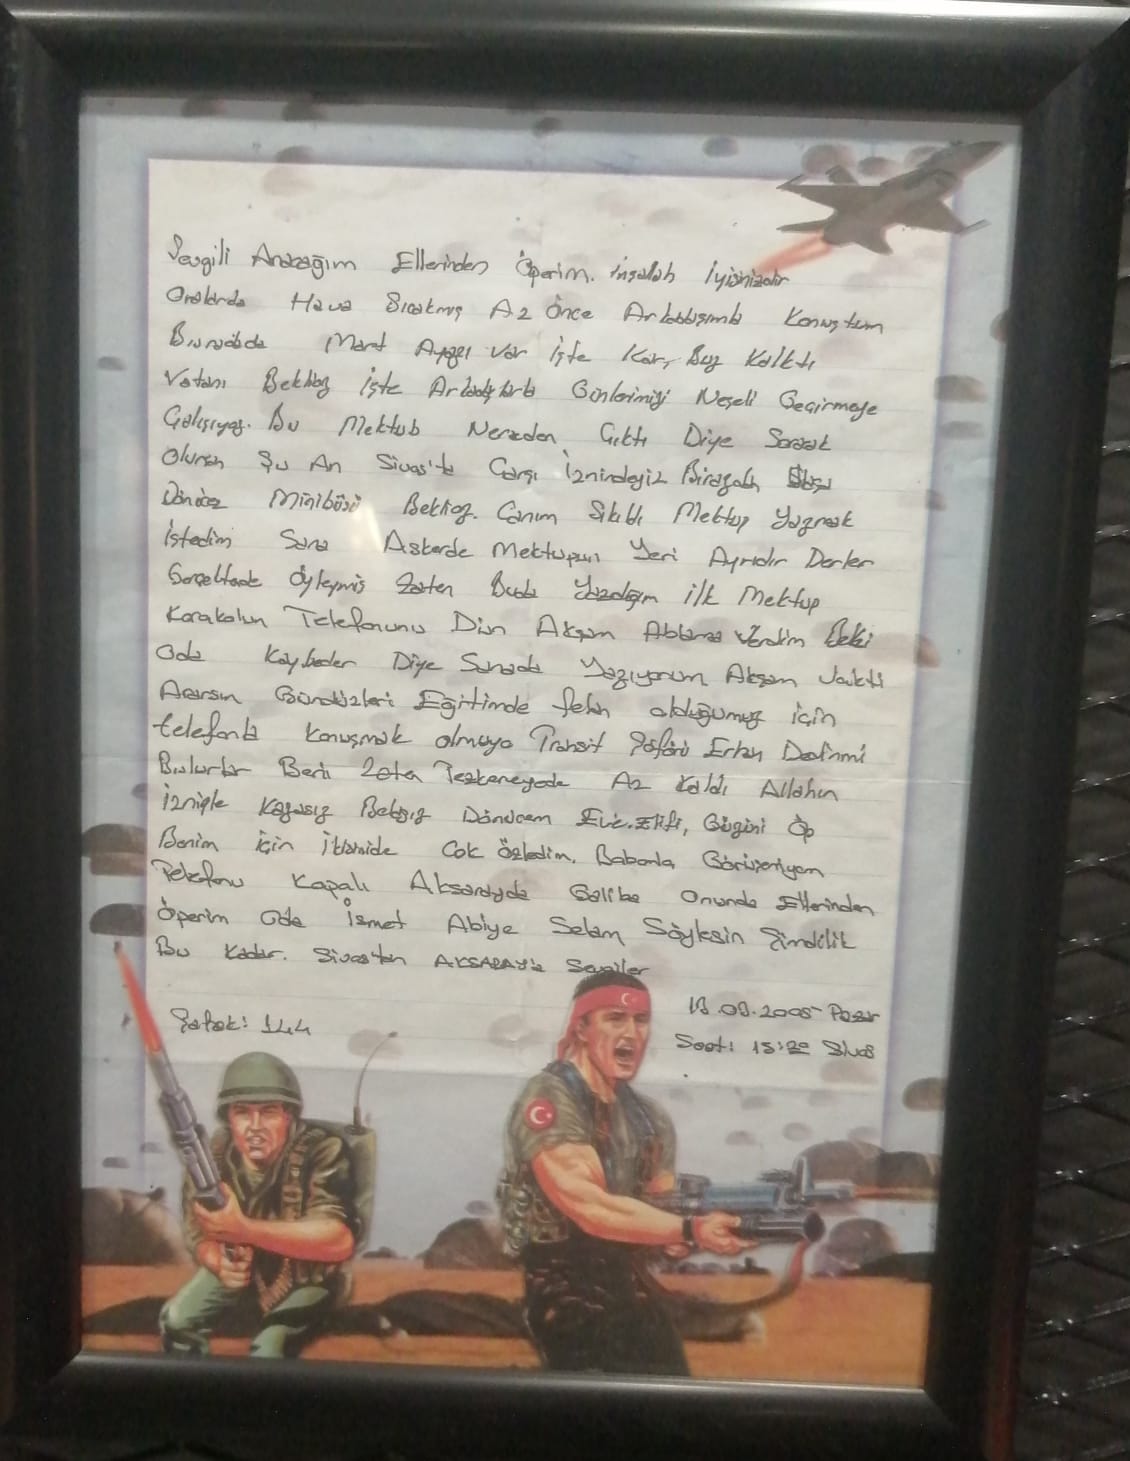 Sevgili Anacağım Ellerinden Öperim. inşalah iyisinizdir
Oralarda Hava Sıcakmış Az Önce Arkadaşımla Konuştum
Buradada Mart Ayazı Var işte Kar, Buz Kalktı
Vatanı Beklioz işte Arkadaşlarla Günlerimizi Neşeli Geçirmeye
Çalışıyoz. Bu Mektub Nereden Çıktı Diye Soracak
Olursan Şu An Sivas'ta Çarşı İznindeyiz Birazdan
Dönücez Minibüsü Beklioz. Canım Sıkıldı Mektup Yazmak
istedim Sana Askerde Mektupun Yeri Ayrıdır Derler
Gerçektende Öyleymiş Zaten Buda Yazdığım ilk Mektup
Karakolun Telefonunu Dün Akşam Ablama Verdim Belki
Oda Kaybeder Diye Sanada Yazıyorum Akşam Vakti
Ararsın Gündüzleri Eğitimde felan olduğumuz için
telefonla Konuşmak olmuyo Transit Şöförü Ertan Dedinmi
Bulurlar Beni Zaten Tezkereyede Az Kaldı Allahın
izniyle Kazasız Belasız Dönücem Eve. Elifi, Gizini Öp
Benim için ikisinide Çok Özledim. Babamla Görüşemiyom
Telefonu Kapalı Aksarayda Galiba Onunda Ellerinden
Öperim Oda İsmet Abiye Selam Söylesin Şimdilik
Bu Kadar. Sivas'tan AKSARAY'a Sevgiler
Şafak: 144
13.03.2005 Pazar
Saat: 15:20 Sivas